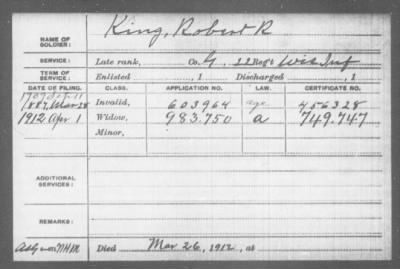 NAME OF SOLDIER: King, Robert R
SERVICE: Late rank, Co. G, 22 Reg't Wis Inf
TERM OF SERVICE: Enlisted , 1 Discharged , 1
DATE OF FILING. CLASS. APPLICATION NO. LAW. CERTIFICATE NO.
1887, Mar 28 Invalid, 603964 age. 456328
1912 Apr 1 Widow, 983.750 a 749.747
Minor,
ADDITIONAL SERVICES:
REMARKS:
Died Mar 26, 1912, at